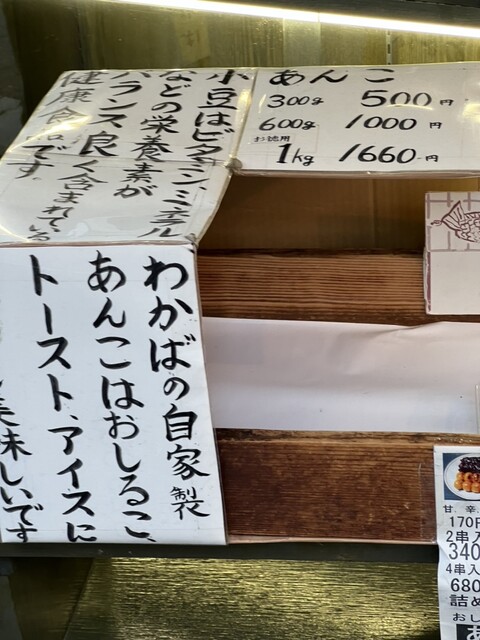 小豆はビタミン、ミネラル
などの栄養素が
バランス良く含まれている
健康食品です。
あんこ
300g 500円
600g 1000円
お徳用
1kg 1660円
わかばの自家製
あんこはおしるこ、
トースト、アイスに
美味しいです
甘、辛、
170円
2串入
340
4串入
680
詰め
おし